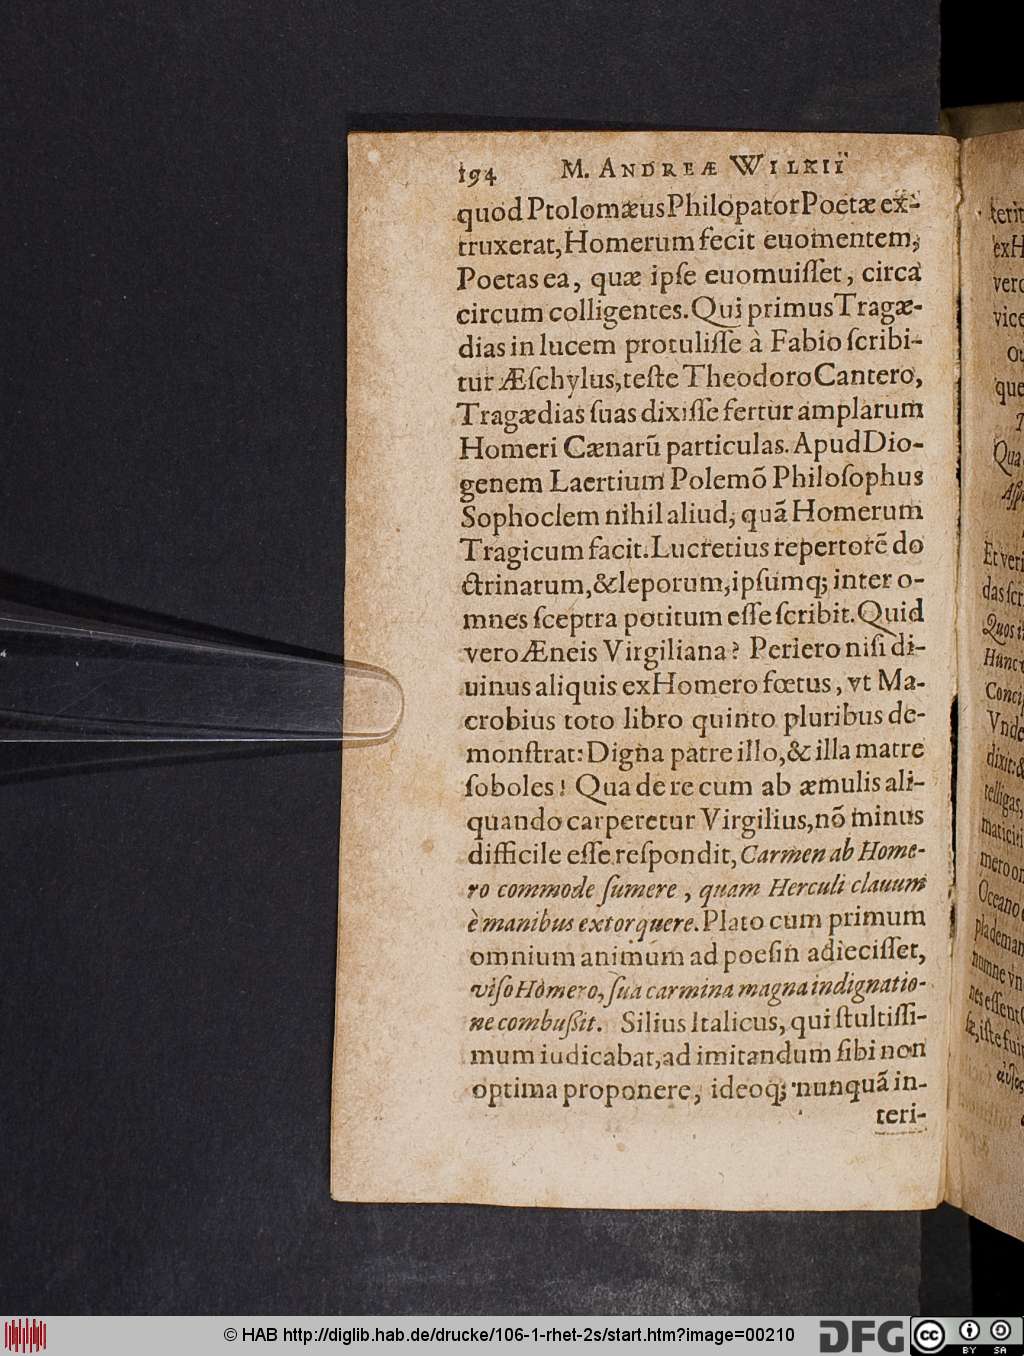 194 M. ANDREÆ WILKII
quod Ptolomæus Philopator Poetæ ex-
truxerat, Homerum fecit euomentem,
Poetas ea, quæ ipſe euomuiſſet, circa
circum colligentes. Qui primus Tragæ-
dias in lucem protuliſſe à Fabio ſcribi-
tur Æſchylus, teſte Theodoro Cantero,
Tragædias ſuas dixiſſe fertur amplarum
Homeri Cænarũ particulas. Apud Dio-
genem Laertium Polemõ Philoſophus
Sophoclem nihil aliud, quã Homerum
Tragicum facit. Lucretius repertorẽ do
ctrinarum, & leporum, ipſumq; inter o-
mnes ſceptra potitum eſſe ſcribit. Quid
vero Æneis Virgiliana? Periero niſi di-
uinus aliquis ex Homero fœtus, vt Ma-
crobius toto libro quinto pluribus de-
monſtrat: Digna patre illo, & illa matre
ſoboles! Qua de re cum ab æmulis ali-
quando carperetur Virgilius, nõ minus
difficile eſſe reſpondit, Carmen ab Home-
ro commode ſumere, quam Herculi clauum
è manibus extorquere. Plato cum primum
omnium animum ad poeſin adieciſſet,
viſo Homero, ſua carmina magna indignatio-
ne combußit. Silius Italicus, qui ſtultiſſi-
mum iudicabat, ad imitandum ſibi non
optima proponere, ideoq; nunquã in-
teri-
© HAB http://diglib.hab.de/drucke/106-1-rhet-2s/start.htm?image=00210
DFG
cc BY SA